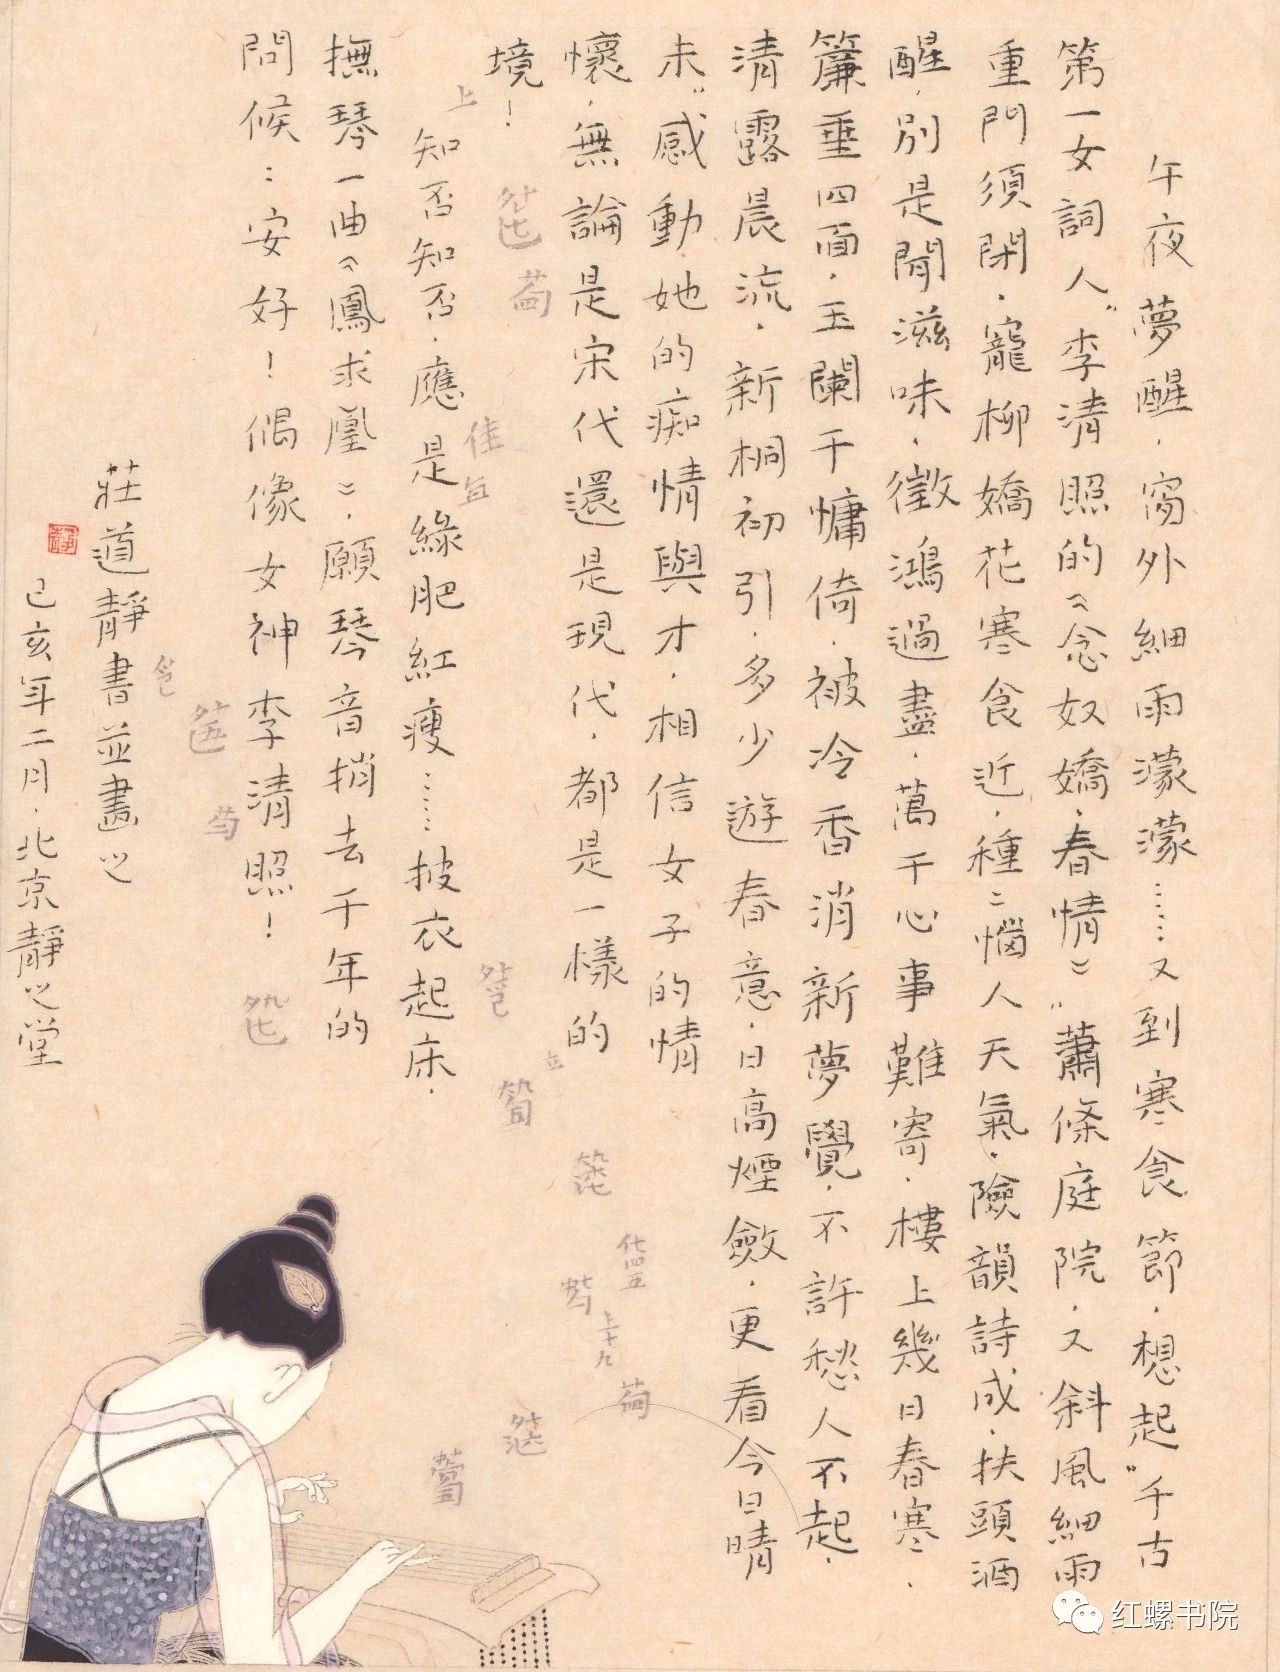 午夜夢醒，窗外細雨濛濛……又到寒食節，想起"千古
第一女詞人"李清照的《念奴嬌·春情》"蕭條庭院，又斜風細雨
重門須閉，寵柳嬌花寒食近，種二惱人天氣，險韻詩成，扶頭酒
醒，別是閒滋味，徵鴻過盡，萬千心事難寄，樓上幾日春寒，
簾垂四面，玉闌干慵倚，被冷香消新夢覺，不許愁人不起，
清露晨流，新桐初引，多少遊春意，日高煙斂，更看今日晴
未"感動她的痴情與才，相信女子的情
懷，無論是宋代還是現代，都是一樣的
境！
知否知否，應是綠肥紅瘦……披衣起床，
撫琴一曲《鳳求凰》，願琴音捎去千年的
問候：安好！偶像女神李清照！
莊道靜書並畫之
己亥年二月，北京靜之堂
红螺书院